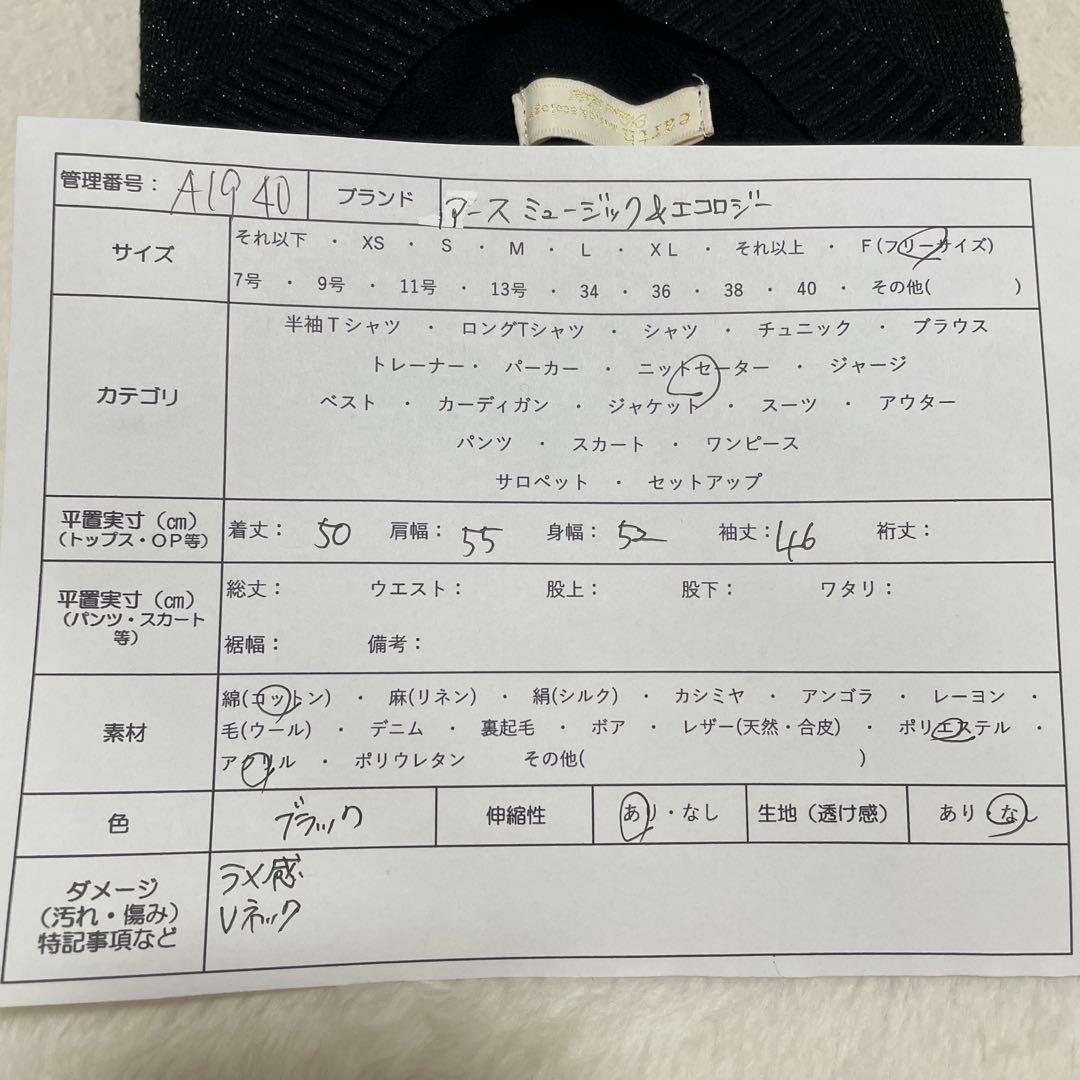 earth music & ecology
管理番号： A1940 ブランド アース ミュージック&エコロジー
サイズ それ以下 ・ XS ・ S ・ M ・ L ・ XL ・ それ以上 ・ F(フリーサイズ)
7号 ・ 9号 ・ 11号 ・ 13号 ・ 34 ・ 36 ・ 38 ・ 40 ・ その他( )
カテゴリ 半袖Tシャツ ・ ロングTシャツ ・ シャツ ・ チュニック ・ ブラウス
トレーナー・ パーカー ・ ニットセーター ・ ジャージ
ベスト ・ カーディガン ・ ジャケット ・ スーツ ・ アウター
パンツ ・ スカート ・ ワンピース
サロペット ・ セットアップ
平置実寸（㎝）
（トップス・OP等） 着丈： 50 肩幅： 55 身幅： 52 袖丈： 46 裄丈：
平置実寸（㎝）
（パンツ・スカート
等） 総丈： ウエスト： 股上： 股下： ワタリ：
裾幅： 備考：
素材 綿(コットン) ・ 麻(リネン) ・ 絹(シルク) ・ カシミヤ ・ アンゴラ ・ レーヨン ・
毛(ウール) ・ デニム ・ 裏起毛 ・ ボア ・ レザー(天然・合皮) ・ ポリエステル ・
アクリル ・ ポリウレタン その他( )
色 ブラック 伸縮性 あり・なし 生地（透け感） あり・なし
ダメージ
（汚れ・傷み）
特記事項など ラメ感
Vネック